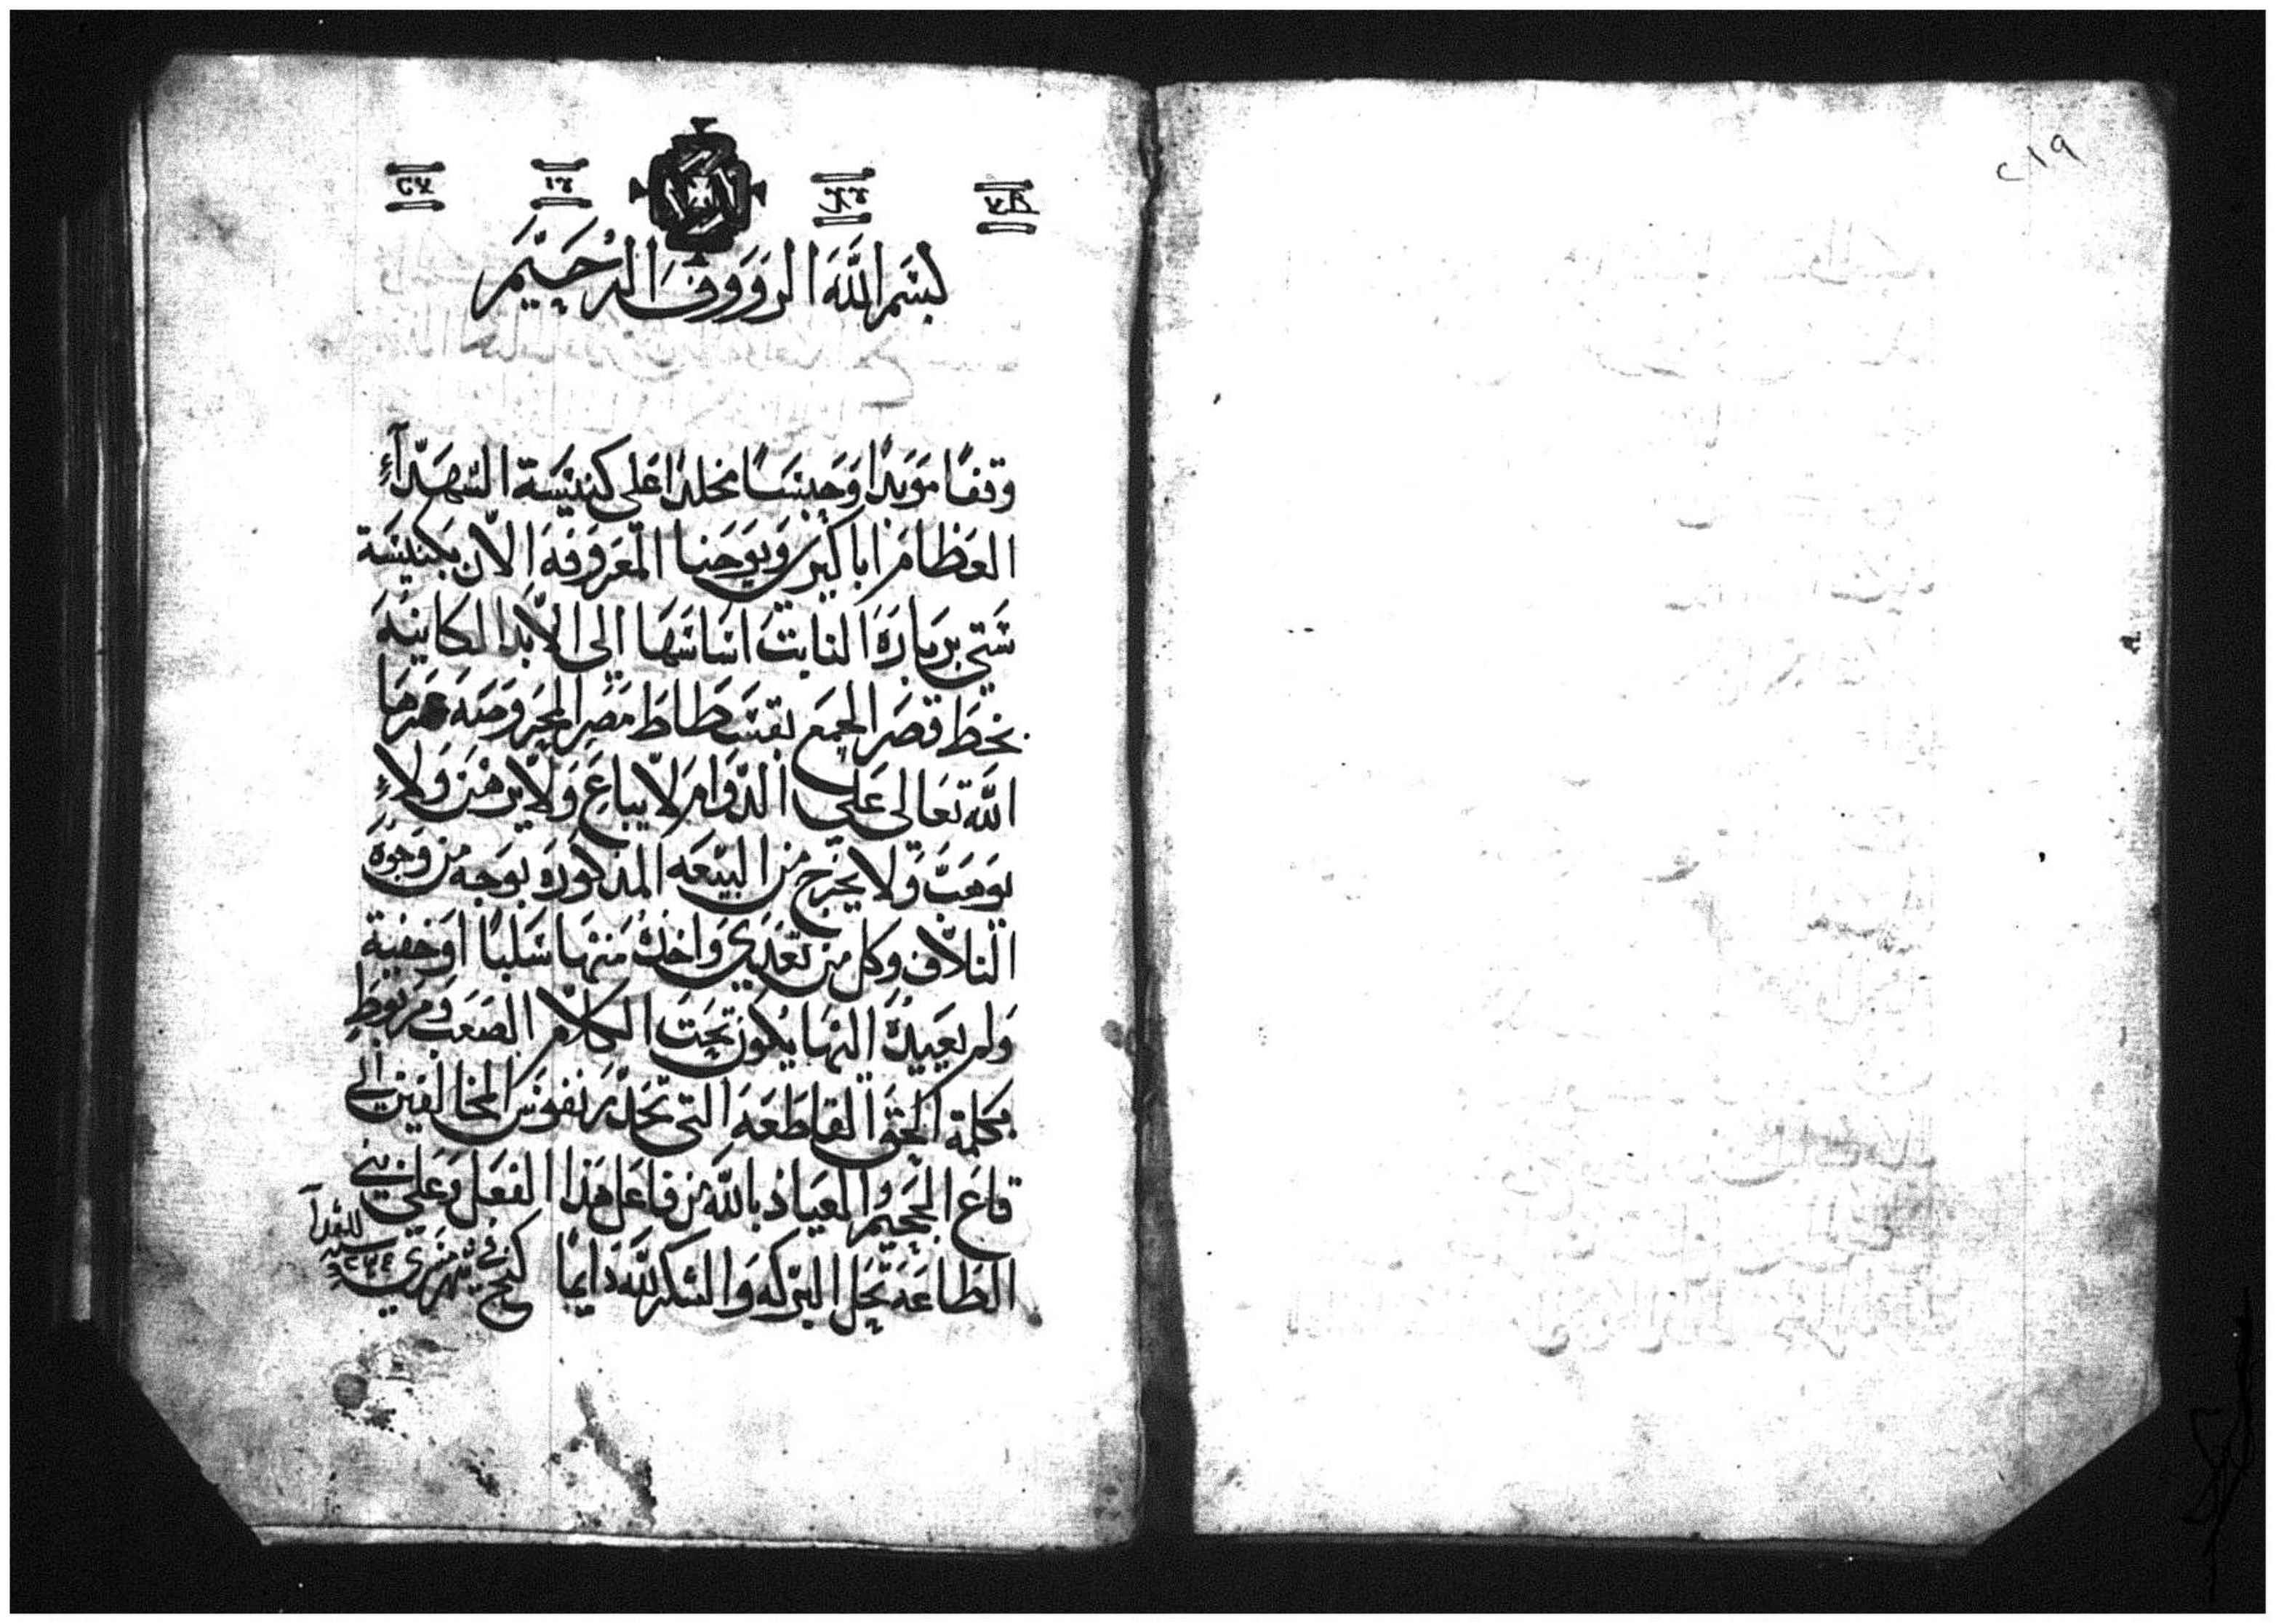 ٢١٩
بسم الله الرووف الرحيم
وقفًا موبدًا وحبسًا مخلدًا على كنيسة الشهدآء
العظام اباكير ويوحنا المعروفه الان بكنيسة
ستي بربارة الثابت اساسها الى الابد الكاينه
بخط قصر الجمع بفسطاط مصر المحروصه عمرها
الله تعالى على الدوام لا يباع ولا يرهن ولاء
يوهب ولا يخرج من البيعه المذكوره بوجه من وجوه
التلاف وكل من تعدي واخده منها سلبًا او خفية
ولم يعيده اليها يكون تحت الكلام الصعب ومربوط
بكلمة الحق القاطعه التي تحدر نفوس المخالفين الى
قاع الجحيم والعياذ بالله من فاعل هذا الفعل وعلى بني
الطاعه تحل البركه والشكر لله دايمًا في شهر مسري سنة للشهدآ